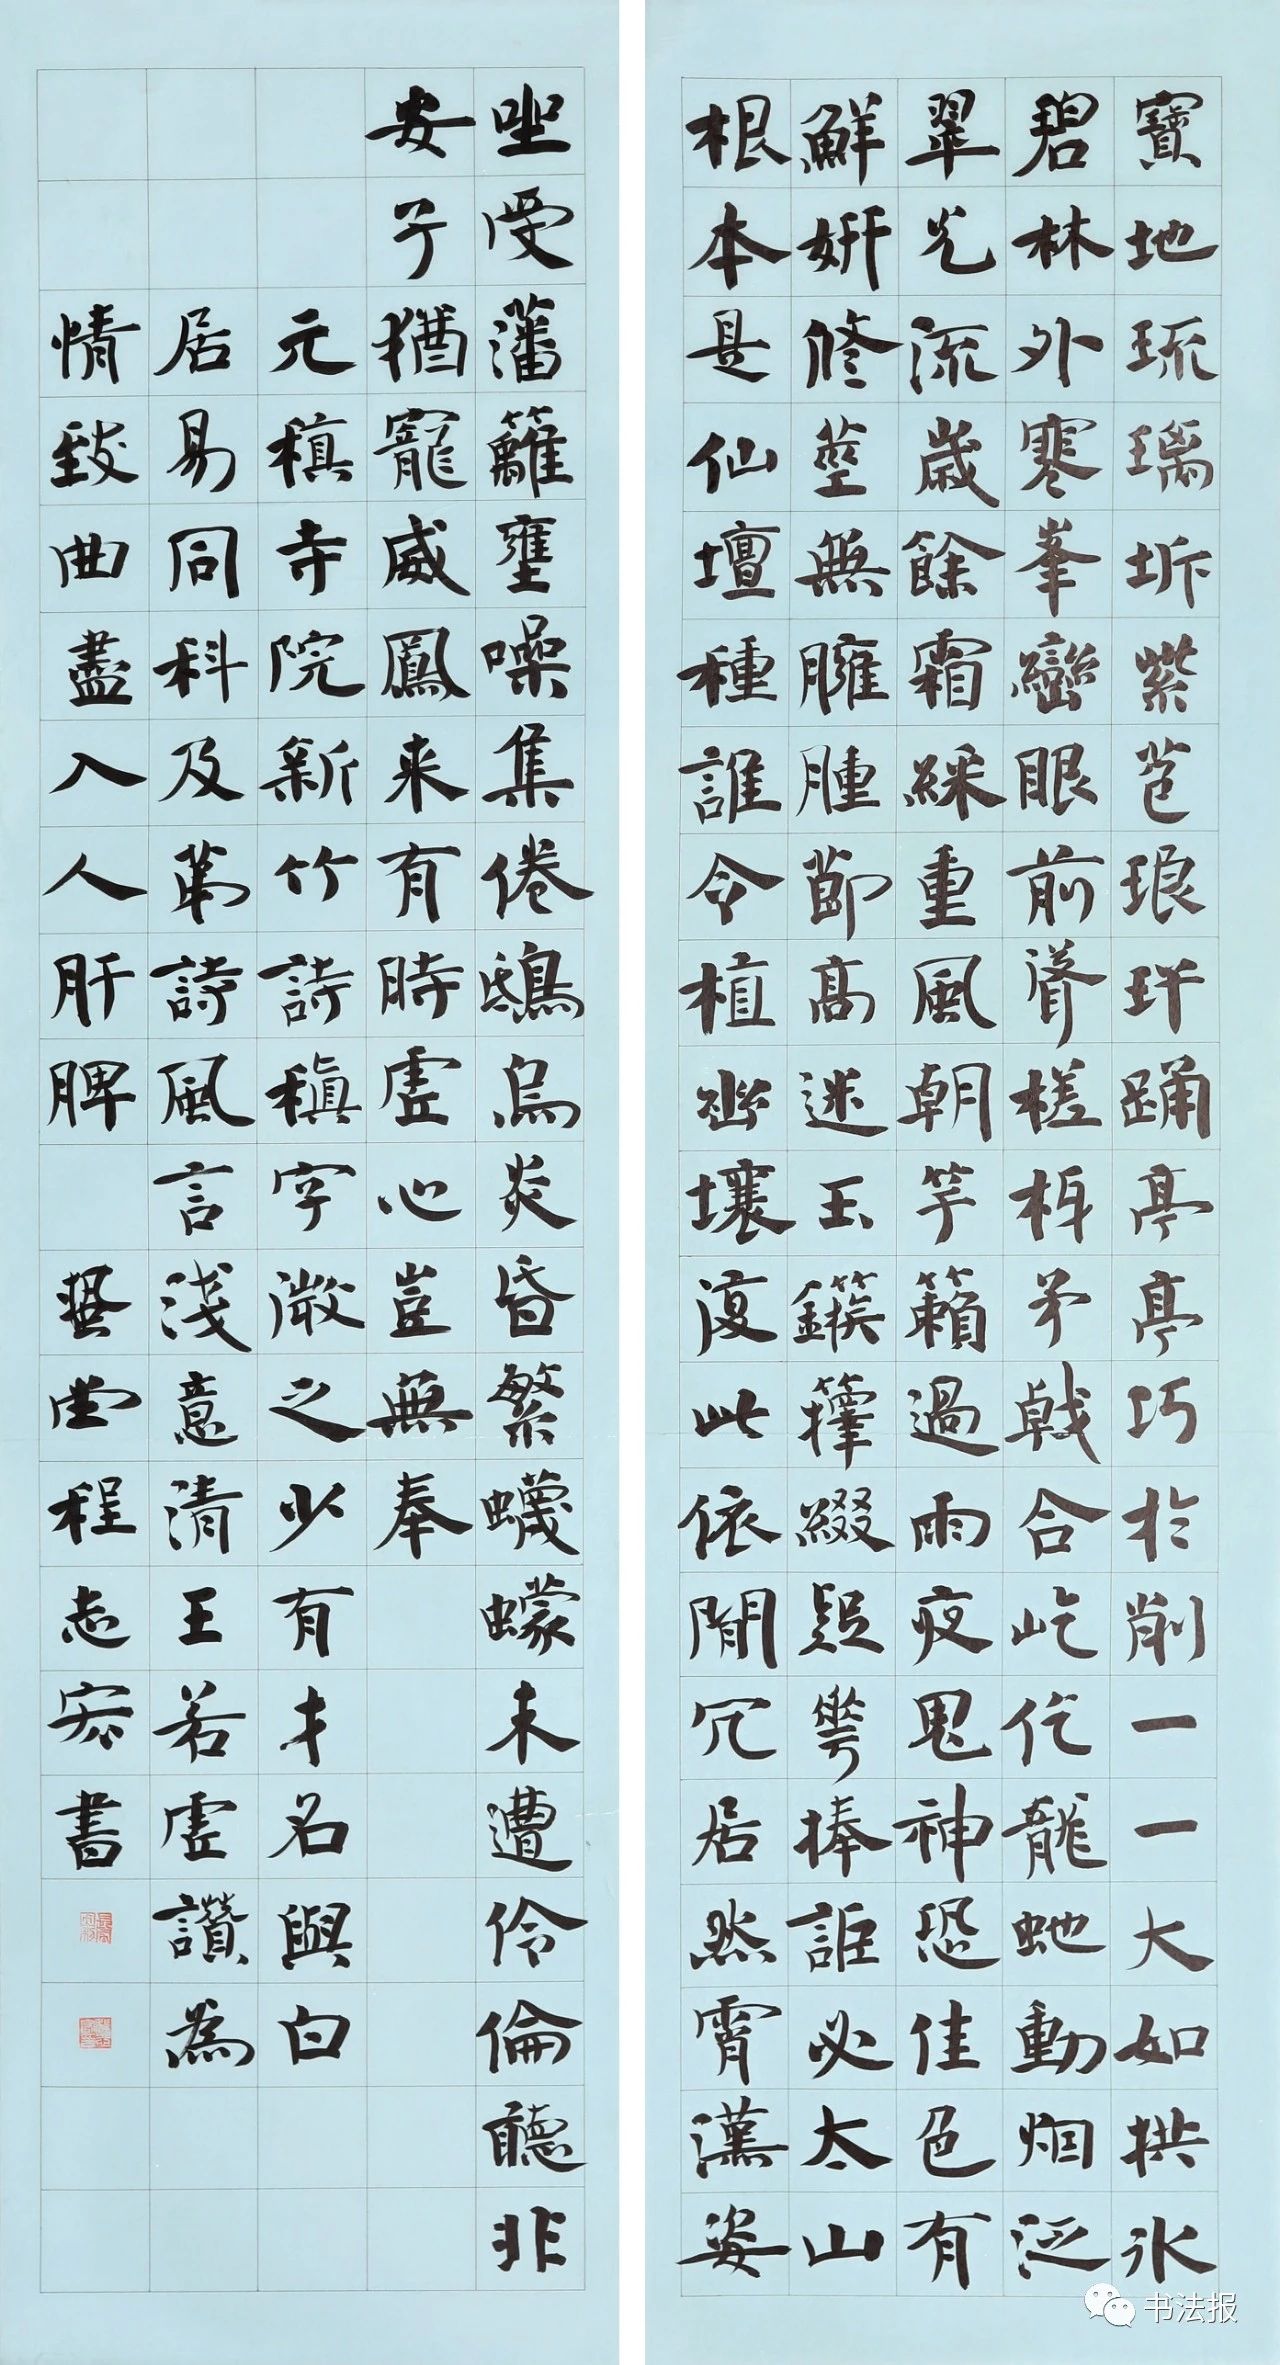 寶地琉璃坼紫苞琅玕踊亭亭巧於削一一大如拱氷
碧林外寒峯巒眼前聳槎枒矛戟合屹仡龍虵動烟泛
翠光流歲餘霜綵重風朝竽籟過雨夜鬼神恐佳色有
鮮妍修莖無臃腫節高迷玉鏃籜綴疑花捧詎必太山
根本是仙壇種誰令植幽壤復此依閒冗居然霄漢姿
坐受藩籬壅噪集倦鴟烏炎昏繁蠛蠓未遭伶倫聽非
安子猶寵威鳳来有時虛心豈無奉
元稹寺院新竹詩稹字微之少有才名與白
居易同科及第詩風言淺意清王若虛讚為
情致曲盡入人肝脾 堂程志宏書
书法报